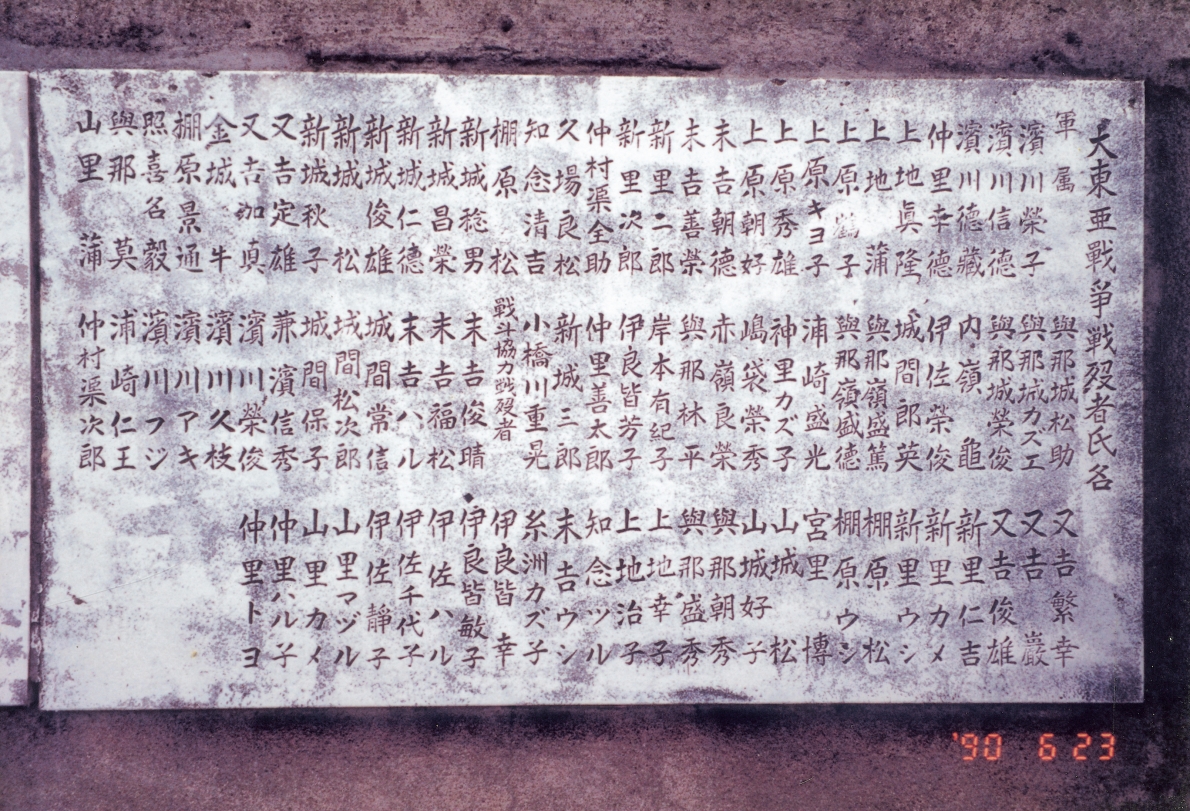 大東亜戦爭戦歿者氏名
軍属
濱川榮子
濱川信德
濱川德藏
仲里幸德
上地眞隆
上地蒲
上原鶴子
上原キヨ子
上原秀雄
上原朝好
末吉朝德
末吉善榮
新里二郎
新里次郎
仲村渠全助
久場良松
知念清吉
棚原松
新城稔男
新城昌榮
新城仁德
新城俊雄
新城松
新城秋子
又吉定雄
又吉加真
金城牛
棚原景通
照喜名毅
與那莫
山里蒲
與那城松助
與那城カズエ
與那城榮俊
内嶺龜
伊佐榮俊
城間郎英
與那嶺盛篤
與那嶺盛德
浦崎盛光
神里カズ子
嶋袋榮秀
赤嶺良榮
與那林平
岸本有紀子
伊良皆芳子
仲里善太郎
新城三郎
小橋川重晃
戦斗協力戦歿者
末吉俊晴
末吉福松
末吉ハル
城間常信
城間松次郎
城間保子
兼濱信秀
濱川榮俊
濱川久枝
濱川アキ
濱川フジ
浦崎仁王
仲村渠次郎
又吉繁幸
又吉巖
又吉俊雄
新里仁吉
新里カメ
新里ウシ
棚原松
棚原ウシ
宮里博
山城松
山城好子
與那朝秀
與那盛秀
上地幸子
上地治子
知念ツル
末吉ウシ
糸洲カズ子
伊良皆幸
伊良皆敏子
伊佐ハル
伊佐千代子
伊佐靜子
山里マヅル
山里カメ
仲里ハル子
仲里トヨ
'90 6 23